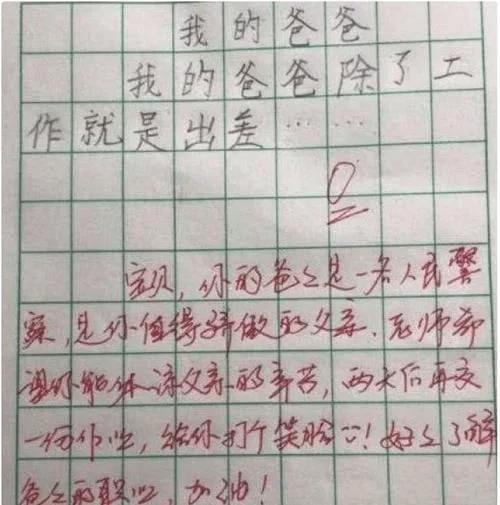 我的爸爸
我的爸爸除了工
作就是出差……
0
宝贝，你的爸爸是一名人民警
察，是你值得骄傲的父亲.老师希
望你能体谅父亲的辛苦，两天后再交
一份作业，给你打个笑脸！好好了解
爸爸的职业，加油！